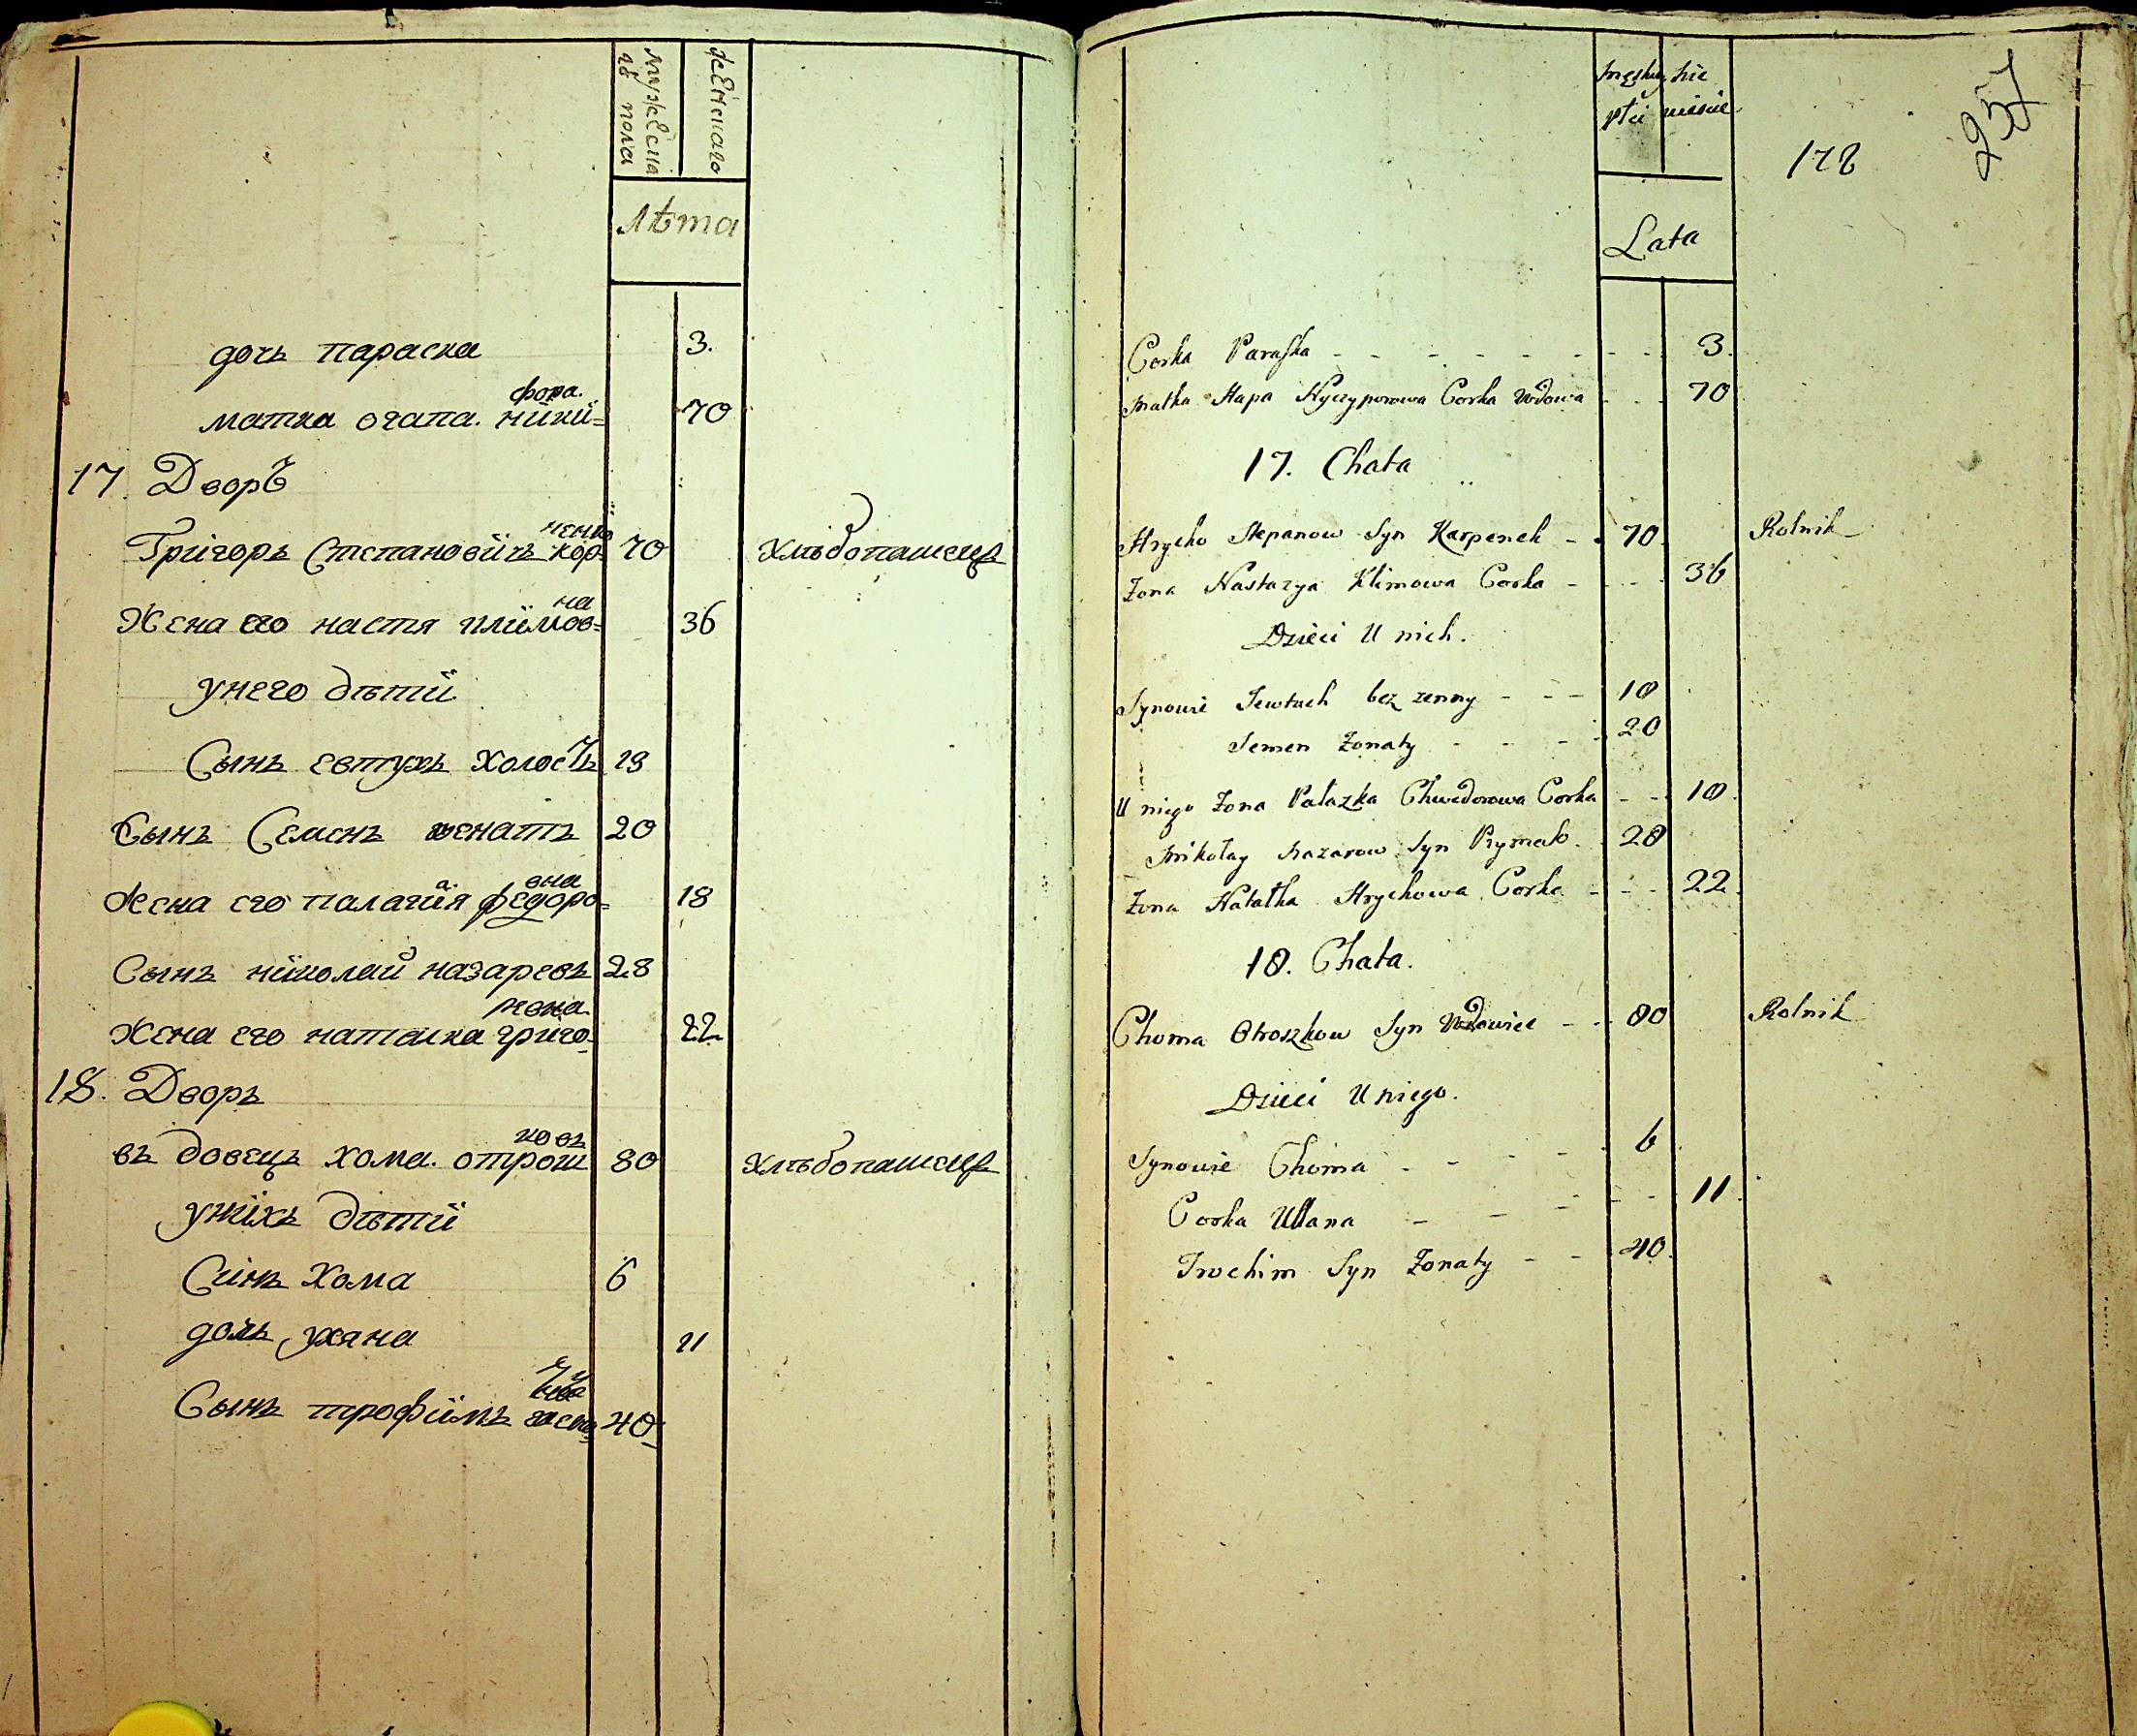 Мужеска
го пола
женскаго
лѣта
дочь параска 3.
матка огапа. ники=
фора. 70
17. Дворъ
Григоръ Степановичъ кор=
ненко 70 хлѣбопашецъ
Жена его настя климов=
на 36
унего дѣти
Сынъ евтухъ холостъ 18
Сынъ Семенъ женатъ 20
Жена его палагия федоро=
вна 18
Сынъ николай назаревъ 28
Жена его наталка григо=
ревна 22
18. Дворъ
въ довецъ хома. отрош
ковъ 80 хлѣбопашецъ
унихъ дѣти
Синъ Хома 6
дочь уляна 11
Сынъ трофимъ 40
męzkiey
płci
Lata
178
257
Corka Paraska 3.
Matka Hapa Nyczyporowa Corka Wdowa 70
17. Chata
Hrycko Stepanow Syn Karpenek 70 Rolnik
Zona Nastazya Klimowa Corka 36
Dzieci U nich.
Synowie Jewtuch bez zenny 18
Semen Zonaty 20
U niego Zona Palazka Chwedorowa Corka 18.
Mikołay Nazarow Syn Prymak. 28
Zona Natalka Hrychowa Corka 22.
18. Chata.
Choma Otroszkow Syn Wdowiec 80 Rolnik
Dzieci U niego.
Synowie Choma 6
Corka Ullana 11.
Trochim Syn Zonaty 40.